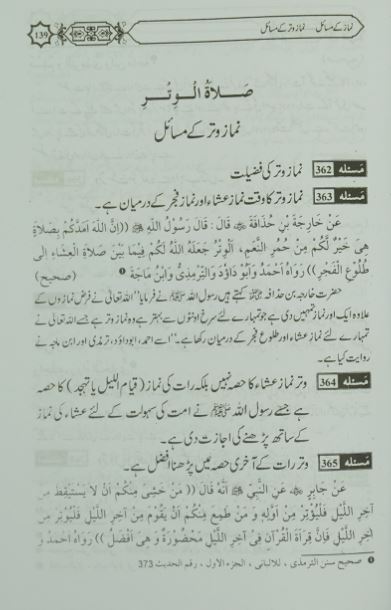 نماز کے مسائل.... نماز وتر کے مسائل
139
صَلاَةُ الْوِتْرِ
نماز وتر کے مسائل
مَسئله 362 نماز وتر کی فضیلت
مَسئله 363 نماز وتر کا وقت نماز عشاء اور نماز فجر کے درمیان ہے۔
عَنْ خَارِجَةَ بْنِ حُذَافَةَ ﷺ قَالَ : قَالَ رَسُوْلُ اللّٰهِ ﷺ ((اِنَّ اللّٰهَ اَمَدَّكُمْ بِصَلاَةٍ
هِيَ خَيْرٌ لَكُمْ مِنْ حُمُرِ النَّعَمِ، اَلْوِتْرُ جَعَلَهُ اللّٰهُ لَكُمْ فِيْمَا بَيْنَ صَلاَةِ الْعِشَاءِ اِلٰى
طُلُوْعِ الْفَجْرِ)) رَوَاهُ اَحْمَدُ وَاَبُوْدَاوُدَ وَالتِّرْمِذِىُّ وَابْنُ مَاجَةَ ❶ (صحیح)
حضرت خارجہ بن حذافہ کہتے ہیں رسول اللہ ﷺ نے فرمایا ''اللہ تعالیٰ نے فرض نمازوں کے
علاوہ ایک اور نماز تمہیں دی ہے جو تمہارے لئے سرخ اونٹوں سے بہتر ہے وہ نماز وتر ہے جسے اللہ تعالیٰ
نے تمہارے لئے نماز عشاء اور طلوع فجر کے درمیان رکھا ہے۔'' اسے احمد، ابوداؤد، ترمذی اور ابن ماجہ نے
روایت کیا ہے۔
مَسئله 364 وتر نماز عشاء کا حصہ نہیں بلکہ رات کی نماز (قیام اللیل یا تہجد) کا حصہ
ہے جسے رسول اللہ ﷺ نے امت کی سہولت کے لئے عشاء کی نماز
کے ساتھ پڑھنے کی اجازت دی ہے۔
مَسئله 365 وتر رات کے آخری حصہ میں پڑھنا افضل ہے۔
عَنْ جَابِرٍ عَنِ النَّبِيِّ ﷺ اَنَّهُ قَالَ ((مَنْ خَشِيَ مِنْكُمْ اَنْ لاَ يَسْتَيْقِظَ مِنْ
آخِرِ اللَّيْلِ فَلْيُوْتِرْ مِنْ اَوَّلِهِ وَ مَنْ طَمِعَ مِنْكُمْ اَنْ يَقُوْمَ مِنْ آخِرِ اللَّيْلِ فَلْيُوْتِرْ مِنْ
آخِرِ اللَّيْلِ فَاِنَّ قِرَاءَةَ الْقُرْآنِ فِيْ آخِرِ اللَّيْلِ مَحْضُوْرَةٌ وَ هِيَ اَفْضَلُ)) رَوَاهُ اَحْمَدُ وَ
❶ صحیح سنن الترمذی ، للالبانی ، الجزء الاول ، رقم الحدیث 373